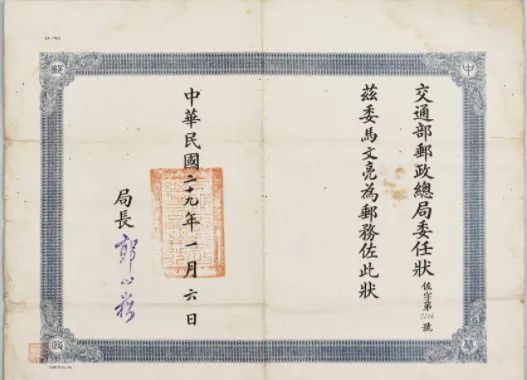 交通部郵政總局委任狀
佐字第 號
茲委馬文亮為郵務佐此狀
中華民國二十九年一月六日
局長
郭心崧